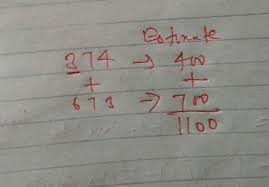 Estimate
374 → 400
+ +
673 → 700
1100